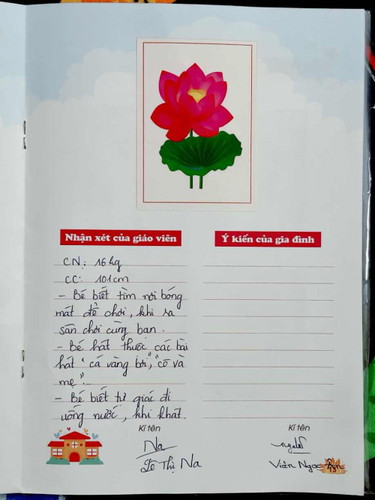 Nhận xét của giáo viên
CN: 16 kg
CC: 101cm
- Bé biết tìm nơi bóng
mát để chơi, khi ra
sân chơi cùng bạn.
- Bé hát thuộc các bài
hát "cá vàng bơi", "cô và
mẹ".
- Bé biết tự giác đi
uống nước, khi khát.
Kí tên
Na
Lê Thị Na
Ý kiến của gia đình
Kí tên
Viên Ngọc